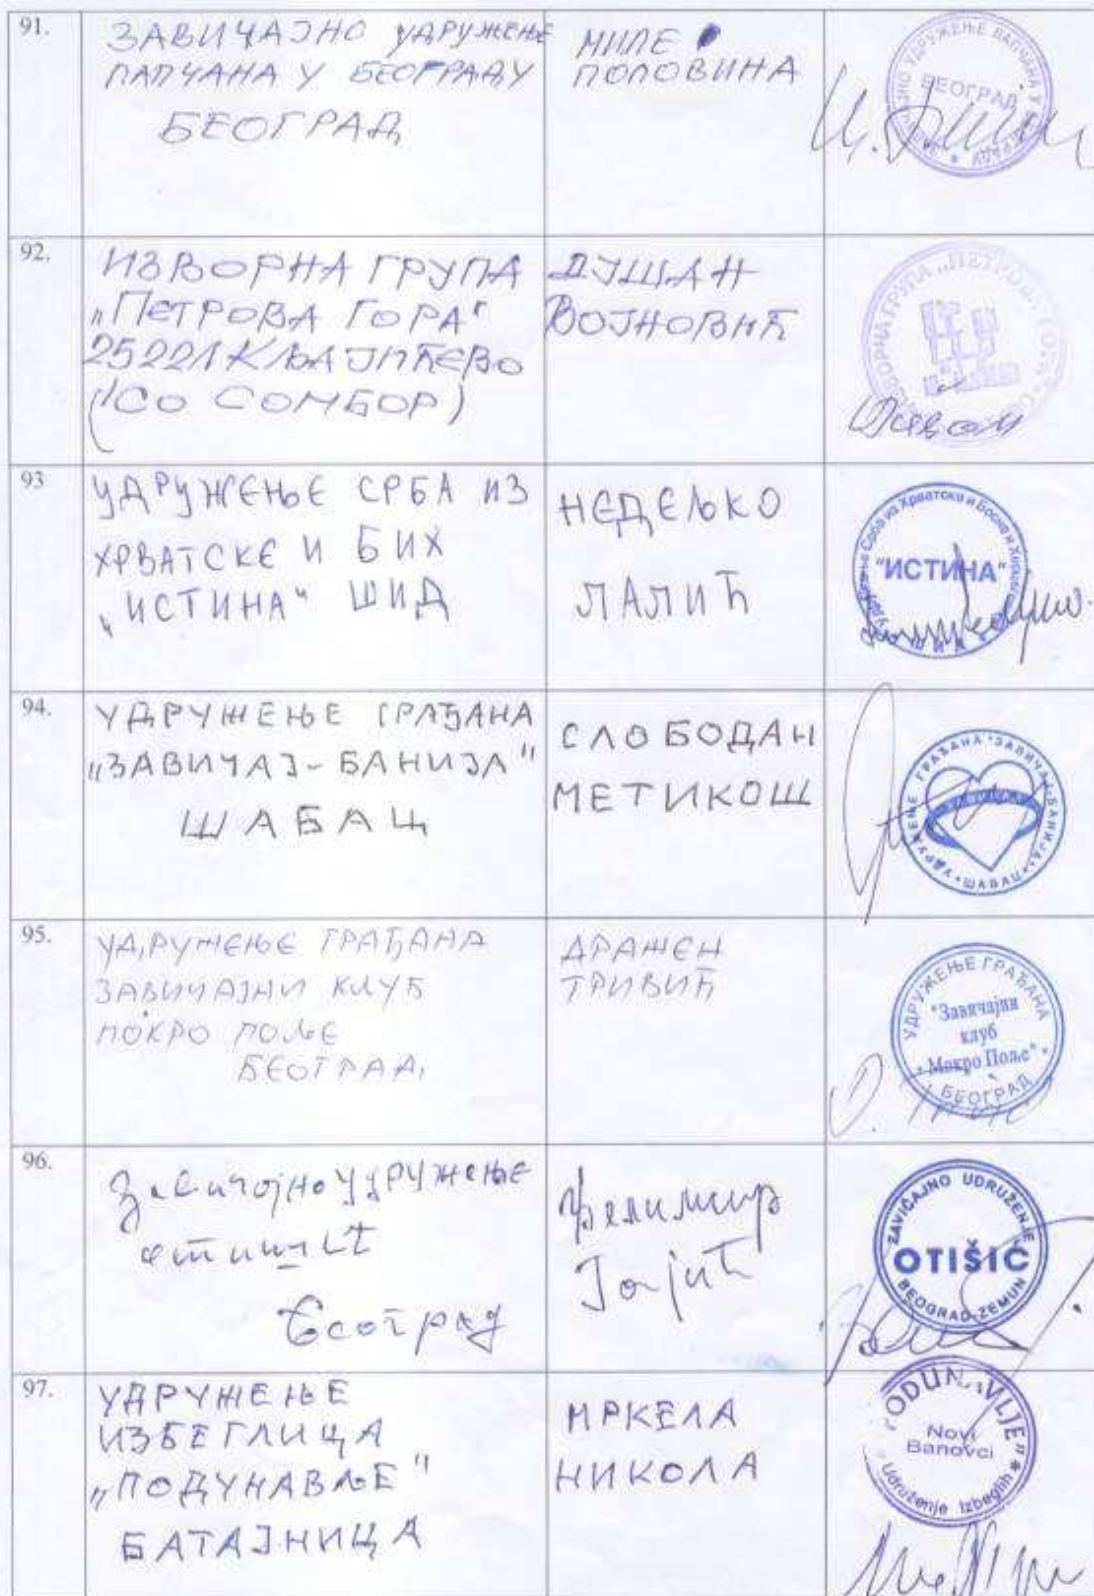 91.
ЗАВИЧАЈНО УДРУЖЕЊЕ
ПАПЧАНА У БЕОГРАДУ
БЕОГРАД
МИЛЕ
ПОПОВИНА
БЕОГРАД
92.
ИЗВОРНА ГРУПА
„ПЕТРОВА ГОРА"
25221 КЉАЈИЋЕВО
(СО СОМБОР)
ДУШАН
ВОЈНОВИЋ
93
УДРУЖЕЊЕ СРБА ИЗ
ХРВАТСКЕ И БИХ
„ИСТИНА" ШИД
НЕДЕЉКО
ЛАЛИЋ
"ИСТИНА"
94.
УДРУЖЕЊЕ ГРАЂАНА
„ЗАВИЧАЈ-БАНИЈА"
ШАБАЦ
СЛОБОДАН
МЕТИКОШ
УДРУЖЕЊЕ ГРАЂАНА "ЗАВИЧАЈ-БАНИЈА"
ШАБАЦ
95.
УДРУЖЕЊЕ ГРАЂАНА
ЗАВИЧАЈНИ КЛУБ
МОКРО ПОЉЕ
БЕОГРАД
ДРАЖЕН
ТРИВИЋ
УДРУЖЕЊЕ ГРАЂАНА
"Завичајни
клуб
Мокро Поље"
БЕОГРАД
96.
Завичајно удружење
Отишић
Београд
Велимир
ZAVIČAJNO UDRUŽENJE
OTIŠIĆ
BEOGRAD-ZEMUN
97.
УДРУЖЕЊЕ
ИЗБЕГЛИЦА
„ПОДУНАВЉЕ"
БАТАЈНИЦА
МРКЕЛА
НИКОЛА
Novi
Banovci
Udruženje Izbeglih